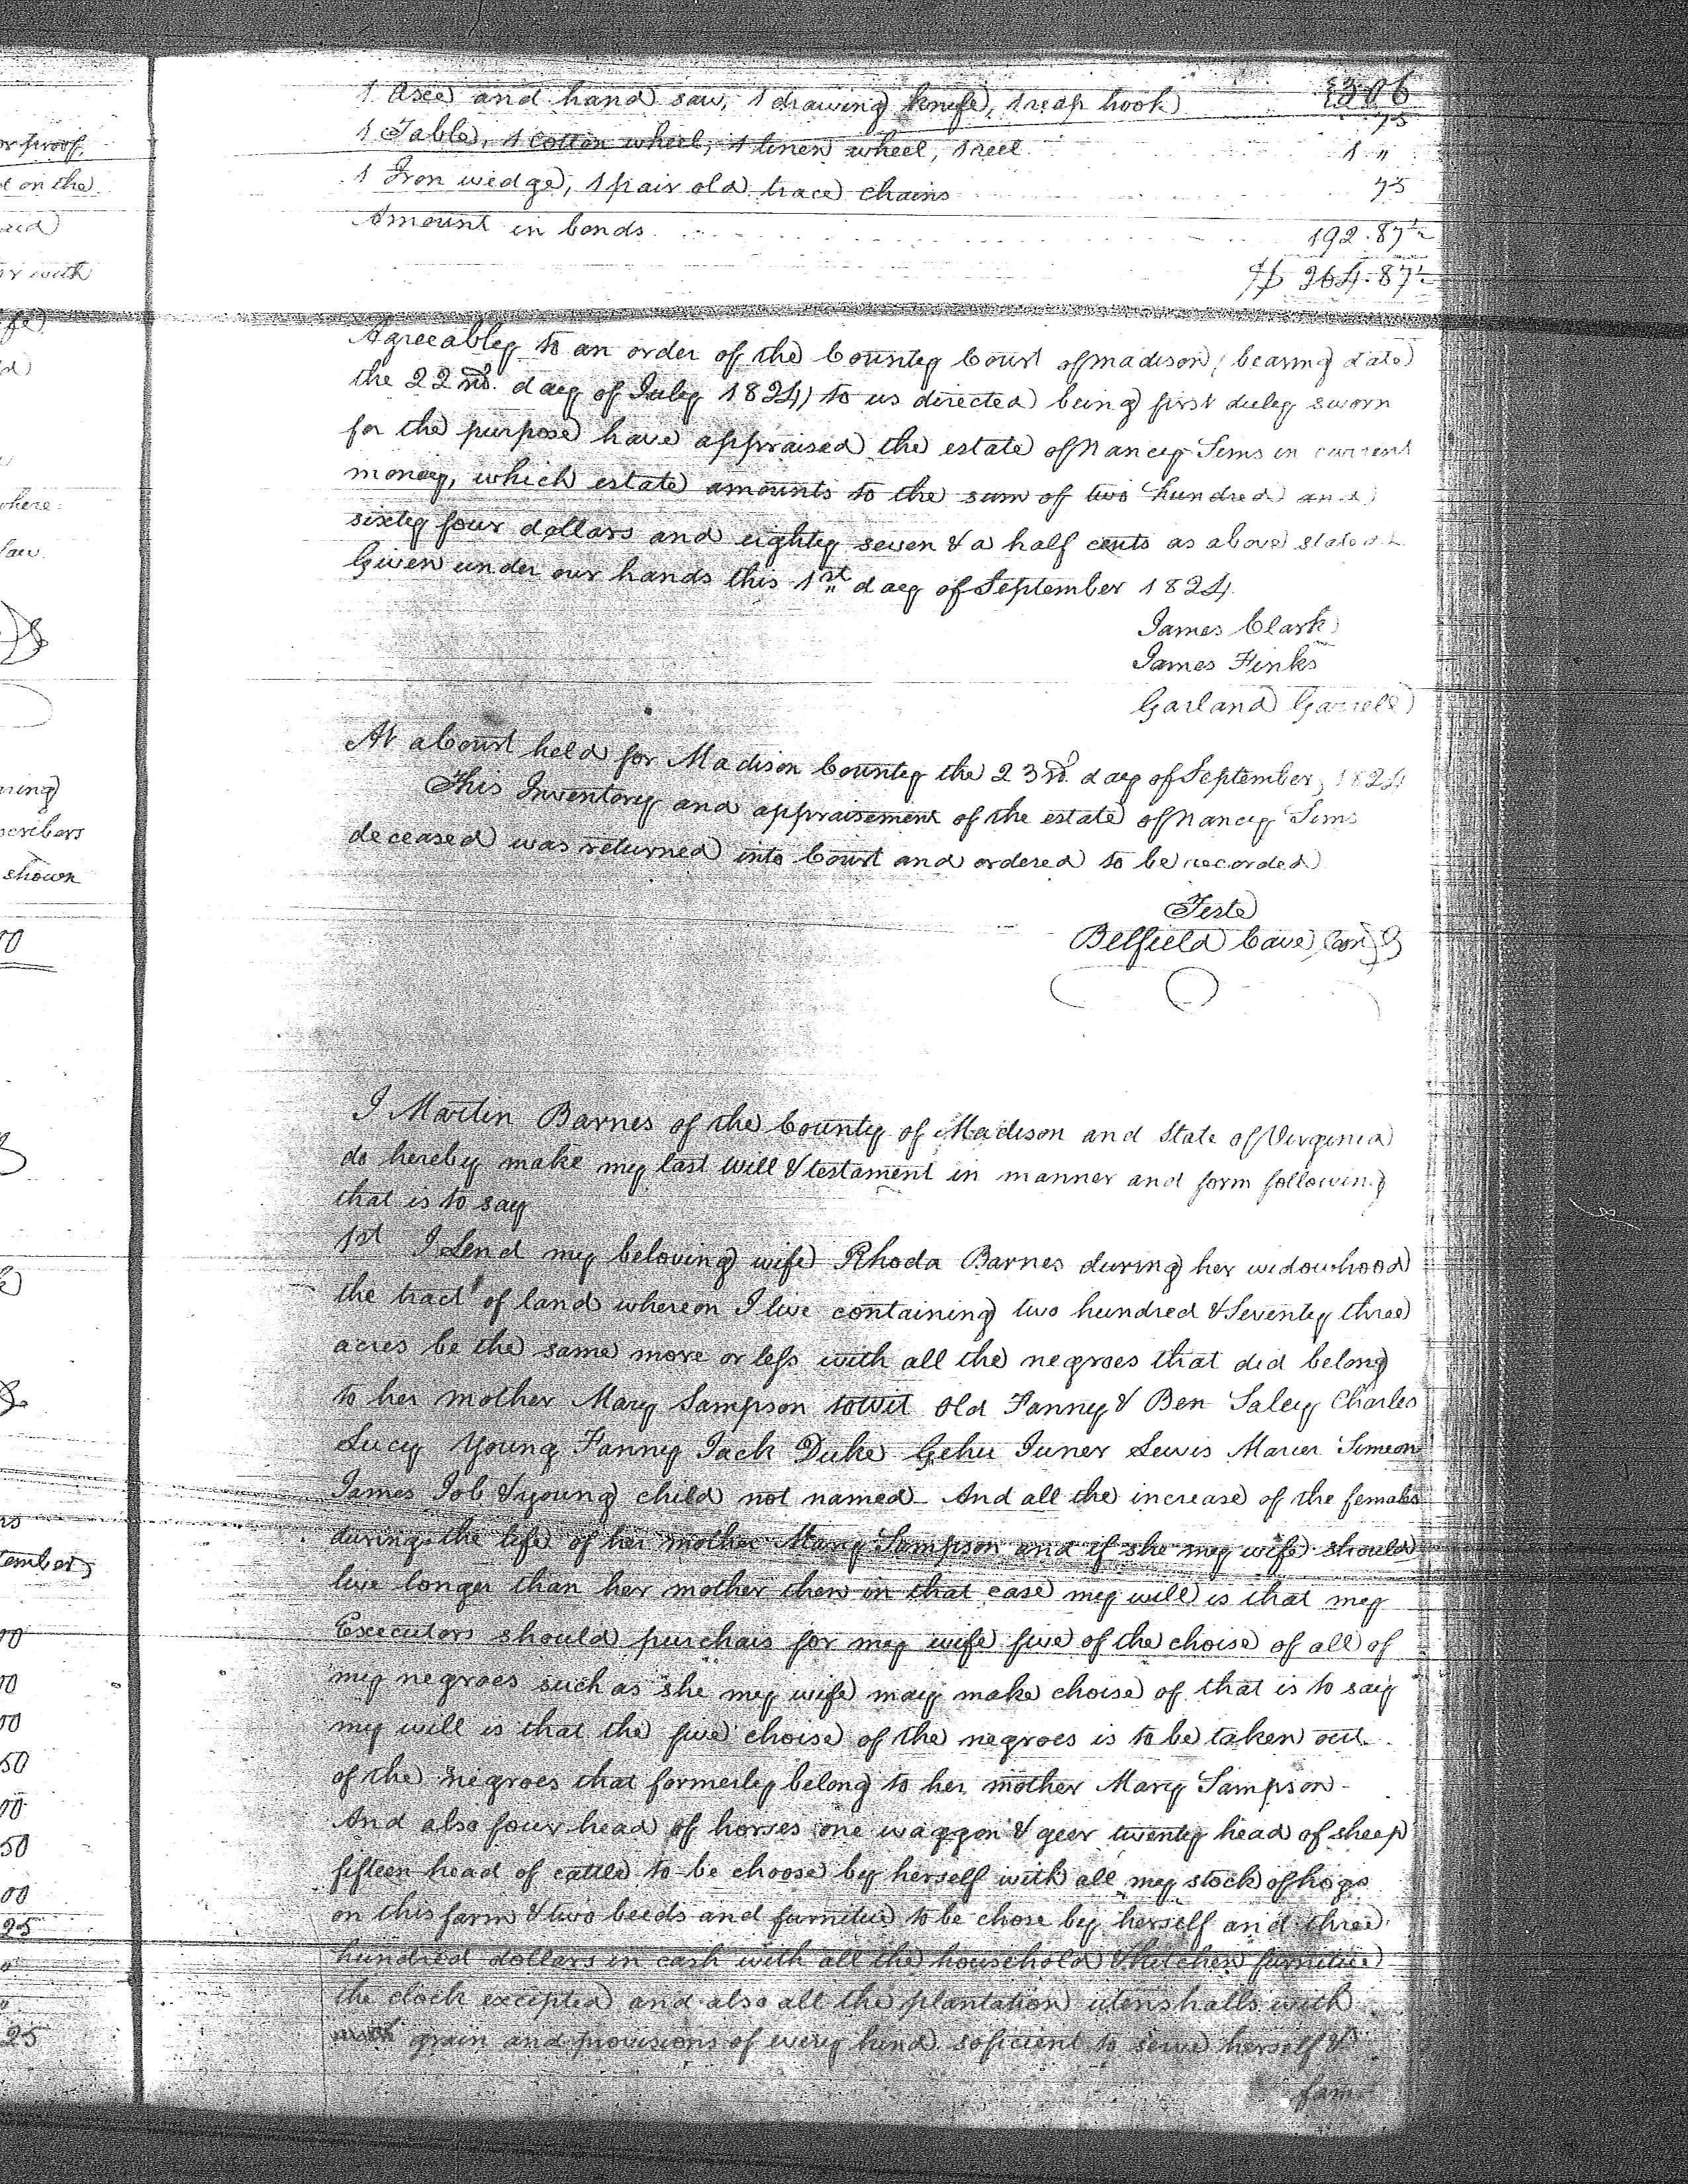 306
1 Axe and hand saw, 1 drawing knife, 1 reap hook 75
1 Table, 1 cotton wheel, 1 linen wheel, 1 reel 1 "
1 Iron wedge, 1 pair old trace chains 75
Amount in bonds 192.87½
$ 264.87½
Agreeably to an order of the County Court of Madison, bearing date
the 22nd. day of July 1824, to us directed being first duly sworn
for the purpose have appraised the estate of Nancy Sims in current
money, which estate amounts to the sum of two hundred and
sixty four dollars and eighty seven & a half cents as above stated
Given under our hands this 1st day of September 1824.
James Clark
James Finks
Garland Garrell
At a Court held for Madison County the 23rd. day of September, 1824
This Inventory and appraisement of the estate of Nancy Sims
deceased was returned into Court and ordered to be recorded
Teste
Belfield Cave
I Martin Barnes of the County of Madison and State of Virginia
do hereby make my last Will & testament in manner and form following
that is to say
1st I Lend my beloving wife Rhoda Barnes during her widowhood
the tract of land whereon I live containing two hundred & Seventy three
acres be the same more or less with all the negroes that did belong
to her mother Mary Sampson towit Old Fanny & Ben Saley Charles
Lucy Young Fanny Jack Duke Gehu Juner Lewis Simeon
James Job & young child not named And all the increase of the females
during the life of her mother Mary Sampson and if she my wife should
live longer than her mother then in that case my will is that my
Executors should purchais for my wife five of the choise of all of
my negroes such as she my wife may make choise of that is to say
my will is that the five choise of the negroes is to be taken out
of the negroes that formerly belong to her mother Mary Sampson
And also four head of horses one waggon & geer twenty head of sheep
fifteen head of cattle to be choose by herself with all my stock of hogs
on this farm & two beeds and furnitue to be chose by herself and three
hundred dollars in cash with all the household & kitchen furnitue
the clock excepted and also all the plantation utenshalls with
grain and provisions of every kind soficient to serve herself &
fam
or proof.
on the
with
where
Law
scribers
shown
00
tember,
00
00
00
50
00
50
00
25
"
"
25